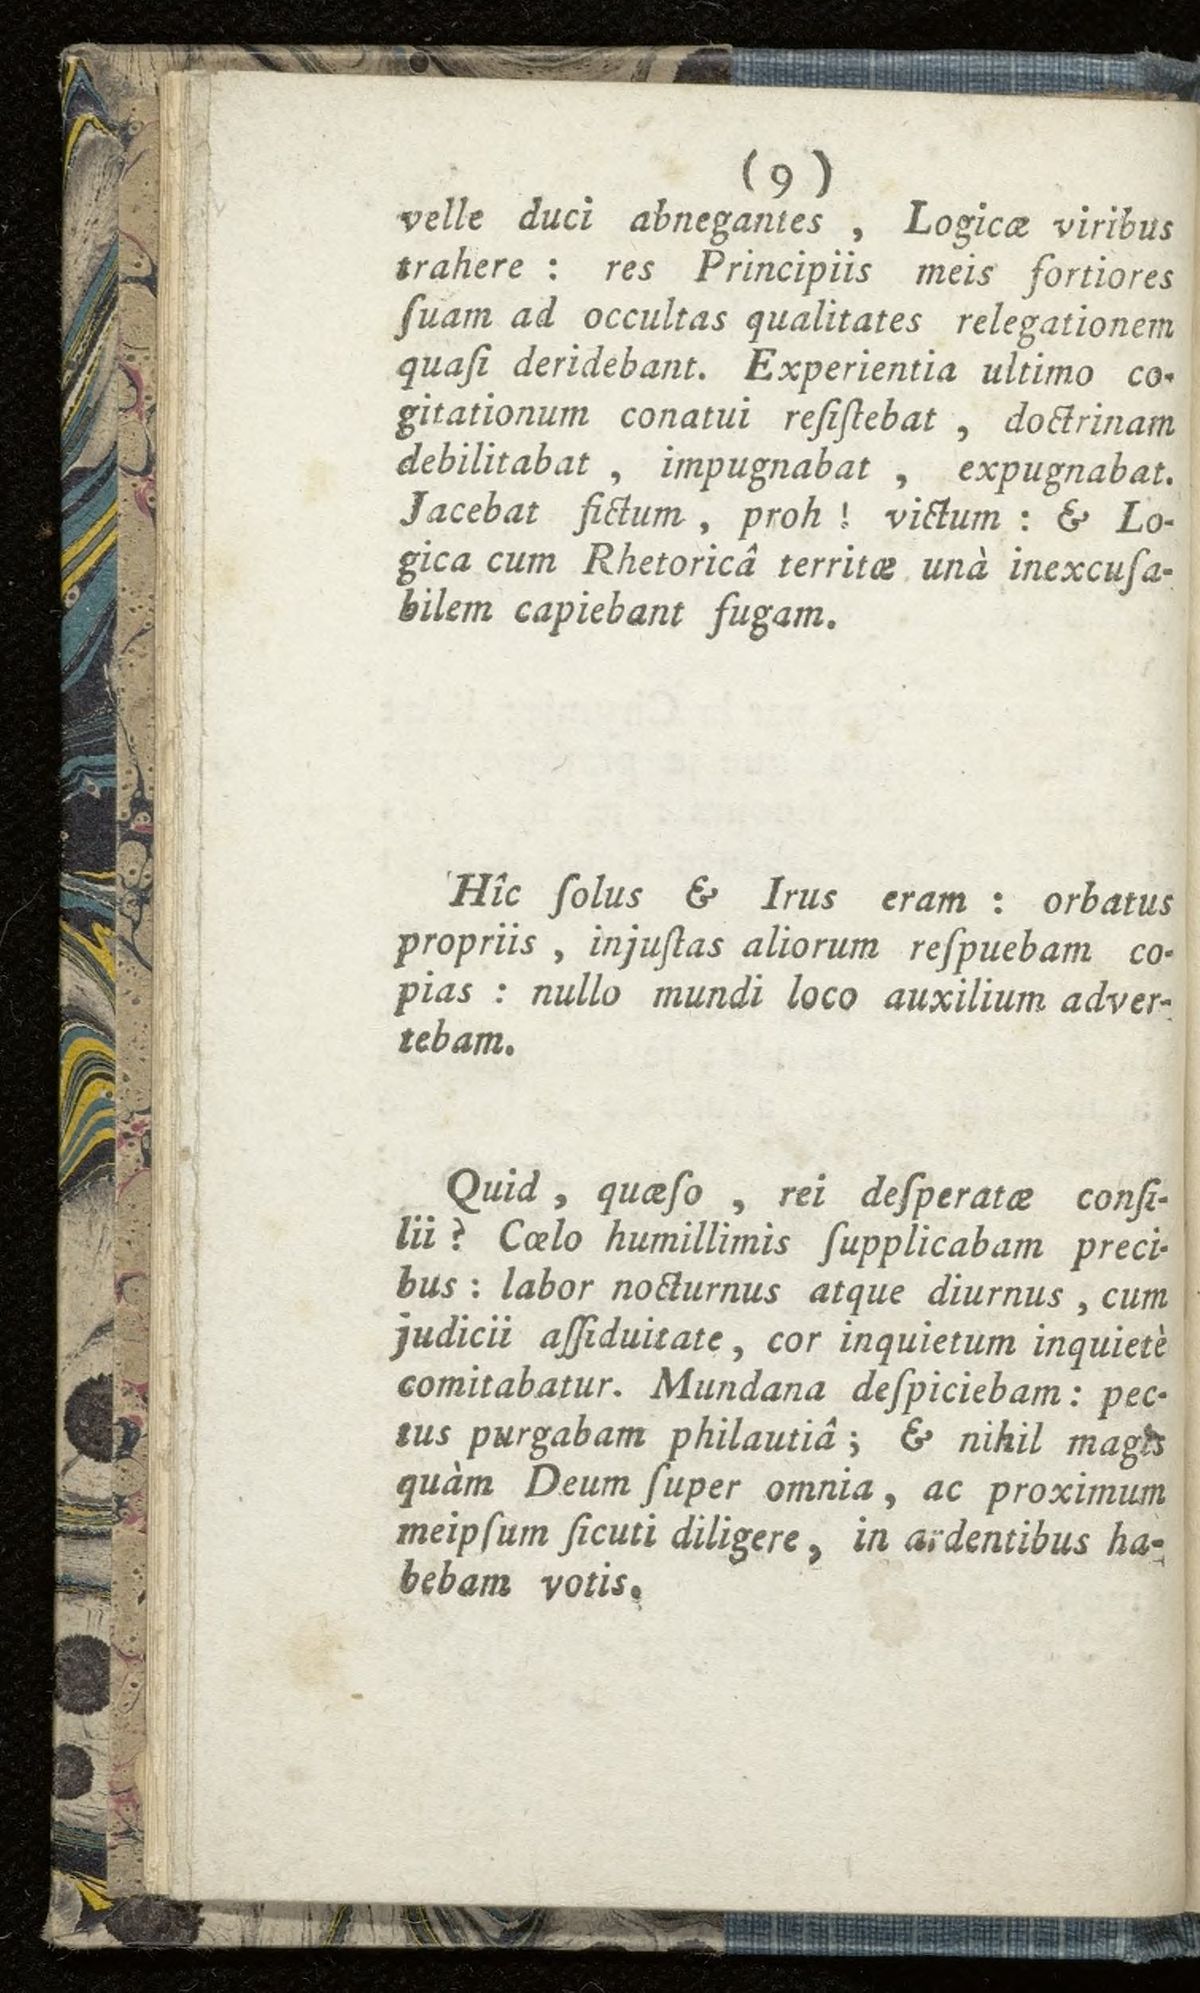 ( 9 )
velle duci abnegantes , Logicæ viribus
trahere : res Principiis meis fortiores
ſuam ad occultas qualitates relegationem
quaſi deridebant. Experientia ultimo co-
gitationum conatui reſiſtebat , doctrinam
debilitabat , impugnabat , expugnabat.
Jacebat fictum , proh ! victum : & Lo-
gica cum Rhetoricâ territæ unà inexcuſa-
bilem capiebant fugam.
Hîc ſolus & Irus eram : orbatus
propriis , injuſtas aliorum reſpuebam co-
pias : nullo mundi loco auxilium adver-
tebam.
Quid , quæſo , rei deſperatæ conſi-
lii ? Cœlo humillimis ſupplicabam preci-
bus : labor nocturnus atque diurnus , cum
judicii aſſiduitate , cor inquietum inquietè
comitabatur. Mundana deſpiciebam : pec-
tus purgabam philautiâ ; & nihil magis
quàm Deum ſuper omnia , ac proximum
meipſum ſicuti diligere , in ardentibus ha-
bebam votis.